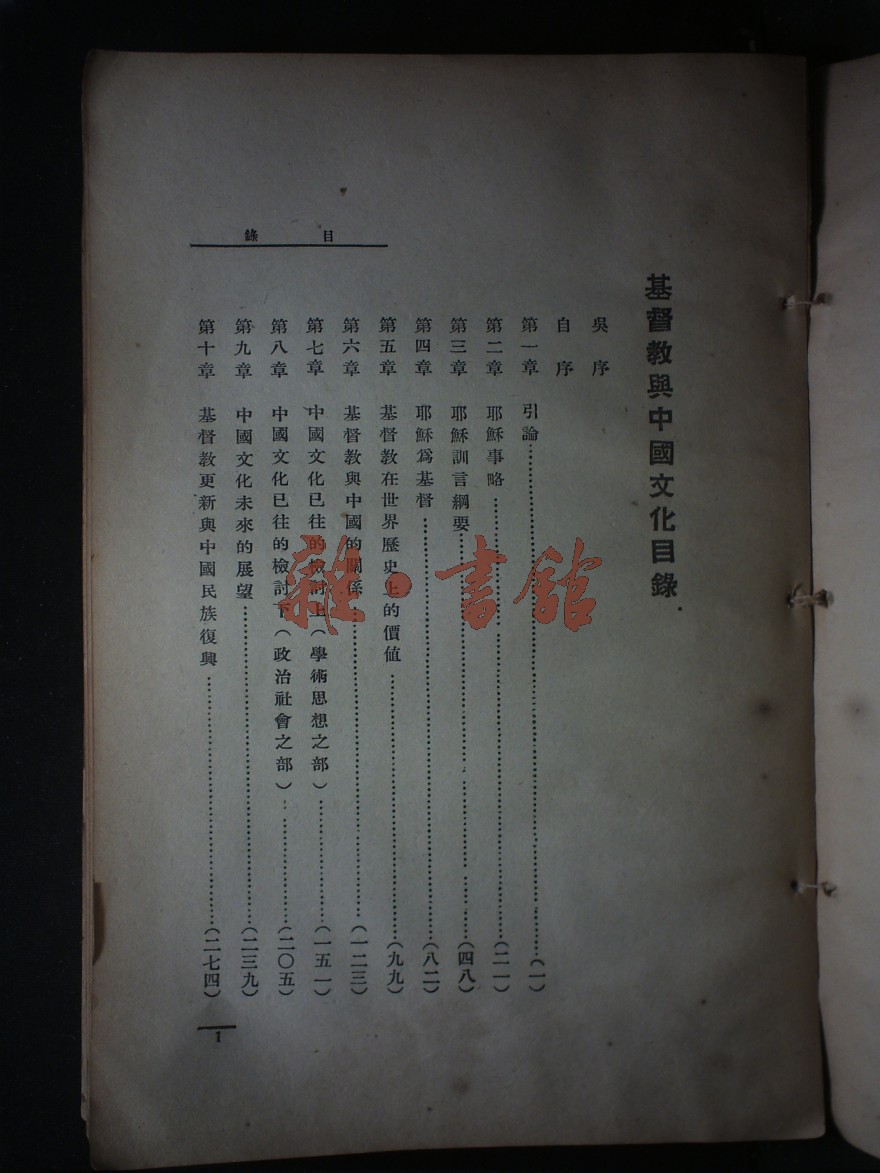 基督教與中國文化目錄
吳序
自序
第一章 引論……(一)
第二章 耶穌事略……(二一)
第三章 耶穌訓言綱要……(四八)
第四章 耶穌爲基督……(八二)
第五章 基督教在世界歷史上的價值……(九九)
第六章 基督教與中國的關係……(一二三)
第七章 中國文化已往的檢討上(學術思想之部)……(一五一)
第八章 中國文化已往的檢討下(政治社會之部)……(二〇五)
第九章 中國文化未來的展望……(二三九)
第十章 基督教更新與中國民族復興……(二七四)
目錄
1
雜·書館